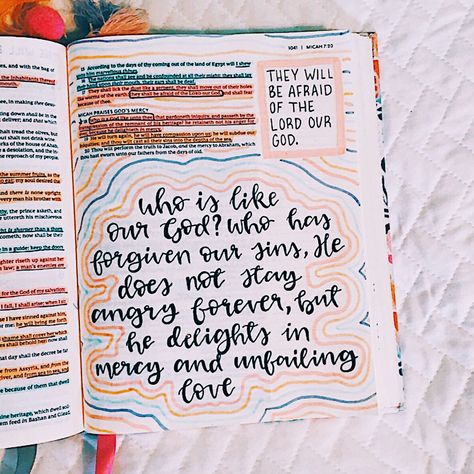 the inhabitants thereof
in making thee deso-
tread the olives, but
works of the house of
the reproach of my people.
the summer fruits, as the
eat; my soul desired the
and there is none upright
every man his brother with
the prince asketh, and
he uttereth his mischievous
is sharper than a thorn
in a guide: keep the doors
daughter riseth up against
law; a man's enemies are
for the God of my salvation
I fall, I shall arise; when I sit
I have sinned against him,
he will bring me forth
shame shall cover her which
shall behold her: now shall
that day shall the decree be
from Assyria, and from the
river, and from sea to sea, and
because of them that dwell
thine heritage, which dwell soli-
them feed in Bashan and Gilead,
1041 | MICAH 7:20
15 According to the days of thy coming out of the land of Egypt will I shew
unto him marvellous things.
16 The nations shall see and be confounded at all their might: they shall lay
their hand upon their mouth, their ears shall be deaf.
17 They shall lick the dust like a serpent, they shall move out of their holes
like worms of the earth: they shall be afraid of the LORD our God, and shall fear
because of thee.
MICAH PRAISES GOD'S MERCY
18 Who is a God like unto thee, that pardoneth iniquity, and passeth by the
transgression of the remnant of his heritage? he retaineth not his anger for
ever, because he delighteth in mercy.
19 He will turn again, he will have compassion upon us; he will subdue our
iniquities; and thou wilt cast all their sins into the depths of the sea.
20 Thou wilt perform the truth to Jacob, and the mercy to Abraham, which
thou hast sworn unto our fathers from the days of old.
THEY WILL
BE AFRAID
OF THE
LORD OUR
GOD.
who is like
our God? Who has
forgiven our sins, He
does not stay
angry forever, but
he delights in
mercy and unfailing
love